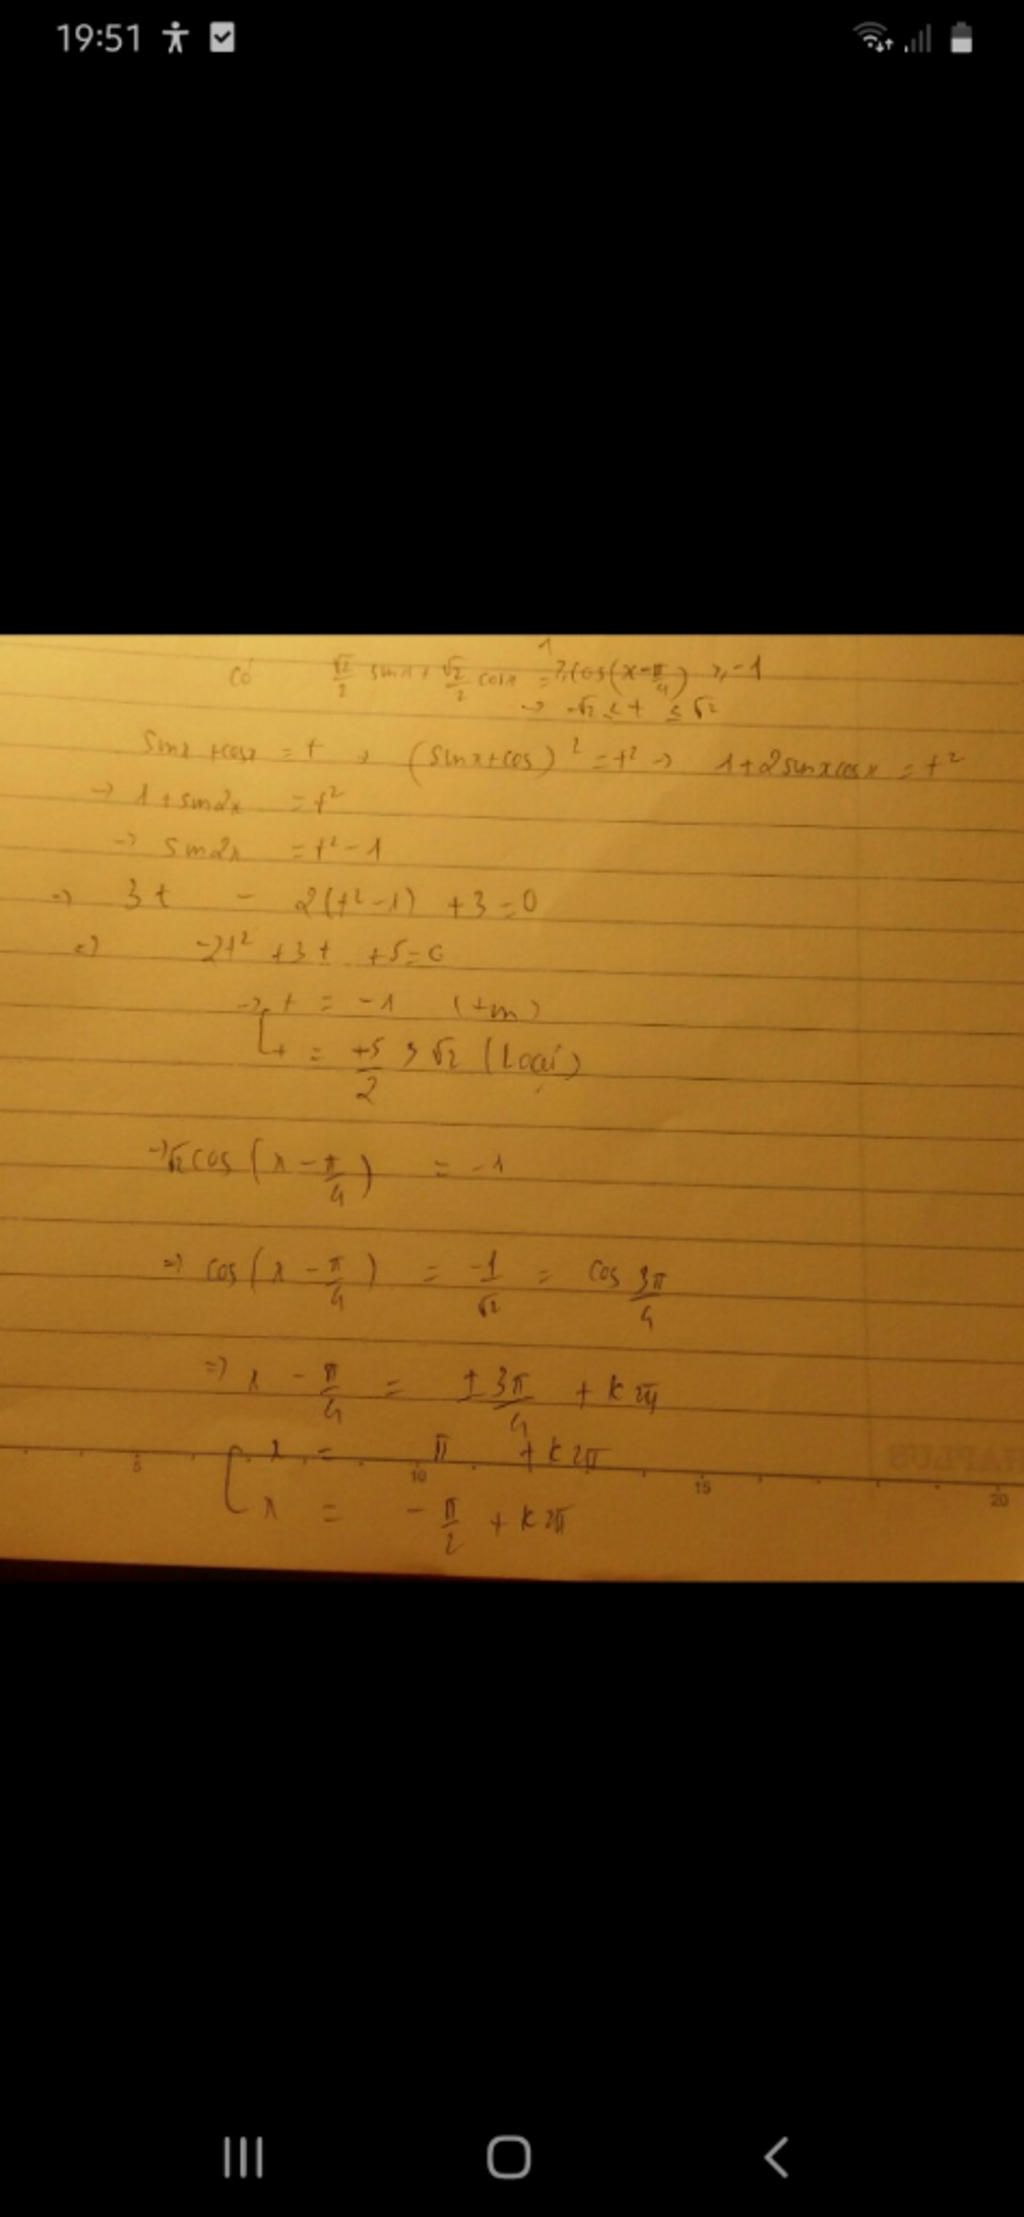 19:51
1
Có √2/2 sinx + √2/2 cosx = cos(x-π/4) ≥ -1
→ -√2 ≤ t ≤ √2
sinx + cosx = t → (sinx+cos)² = t² → 1+2sinxcosx = t²
→ 1 + sin2x = t²
→ sin2x = t² - 1
=> 3t - 2(t²-1) + 3 = 0
<=> -2t² + 3t + 5 = 0
→ [ t = -1 (tm)
t = +5/2 > √2 (Loại)
→ √2 cos(x - π/4) = -1
=> cos(x - π/4) = -1/√2 = cos 3π/4
=> x - π/4 = ± 3π/4 + k2π
[ x = π + k2π
5 10 15 20
x = -π/2 + k2π